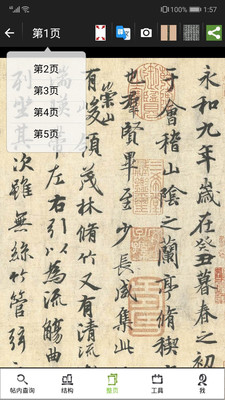 4G
100%
1:57
第1页
第2页
第3页
第4页
第5页
永和九年歲在癸丑暮春之初
于會稽山陰之蘭亭脩稧
也羣賢畢至少長咸集此
有崇山峻領茂林脩竹又有清流
湍映帶左右引以為流觴曲
列坐其次雖無絲竹管弦
帖内查询
结构
整页
工具
我